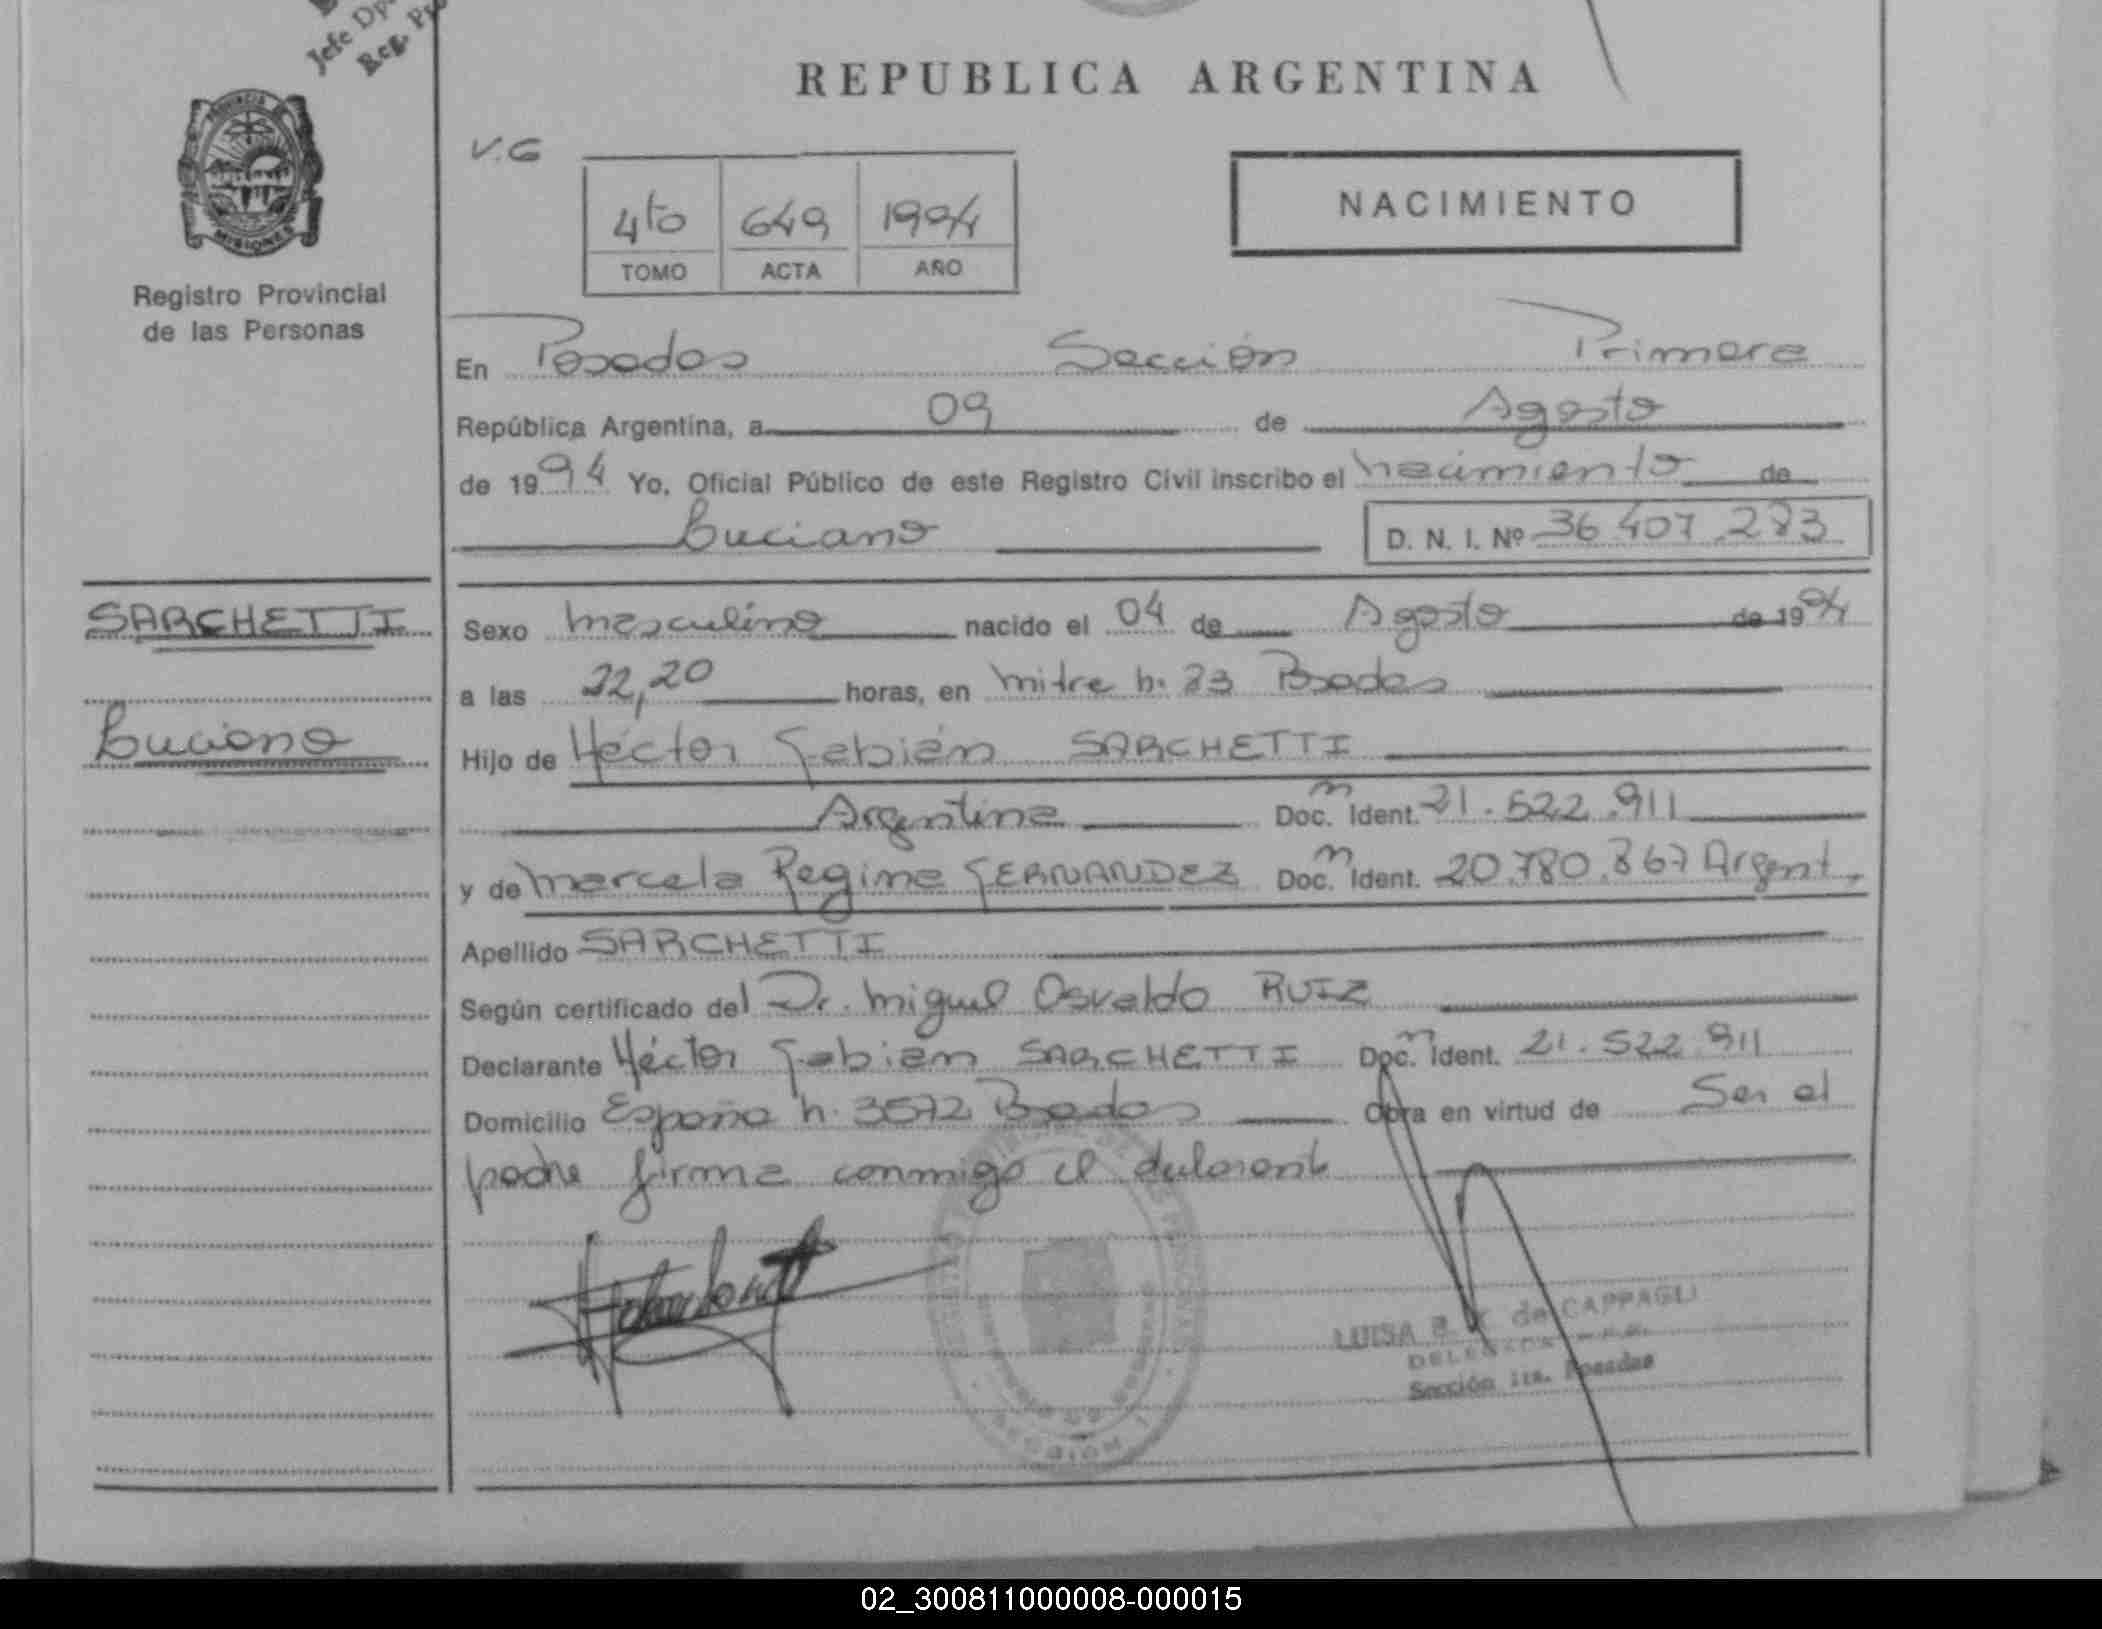 Jefe Dp
Reg. Pr
PROVINCIA DE
MISIONES
Registro Provincial
de las Personas
REPUBLICA ARGENTINA
V.G
4to 649 1994
TOMO ACTA AÑO
NACIMIENTO
En Posadas Sección Primera
República Argentina, a 09 de Agosto
de 1994 Yo, Oficial Público de este Registro Civil inscribo el nacimiento de
Luciano D. N. I. Nº 36 407 283
SARCHETTI
Luciano
Sexo masculino nacido el 04 de Agosto de 1994
a las 22,20 horas, en mitre n. 23 Posadas
Hijo de Héctor Fabián SARCHETTI
Argentina Doc. n Ident. 21.522.911
y de Marcela Regina FERNANDEZ Doc. n Ident. 20.780.867 Argent.
Apellido SARCHETTI
Según certificado del Dr. Miguel Osvaldo RUIZ
Declarante Héctor Fabián SARCHETTI Doc. n Ident. 21.522.911
Domicilio España n. 3572 Posadas Obra en virtud de Ser el
padre firma conmigo el declarante
LUISA de CAPPAGLI
Sección 1ra. Posadas
SECCION 1
02_300811000008-000015